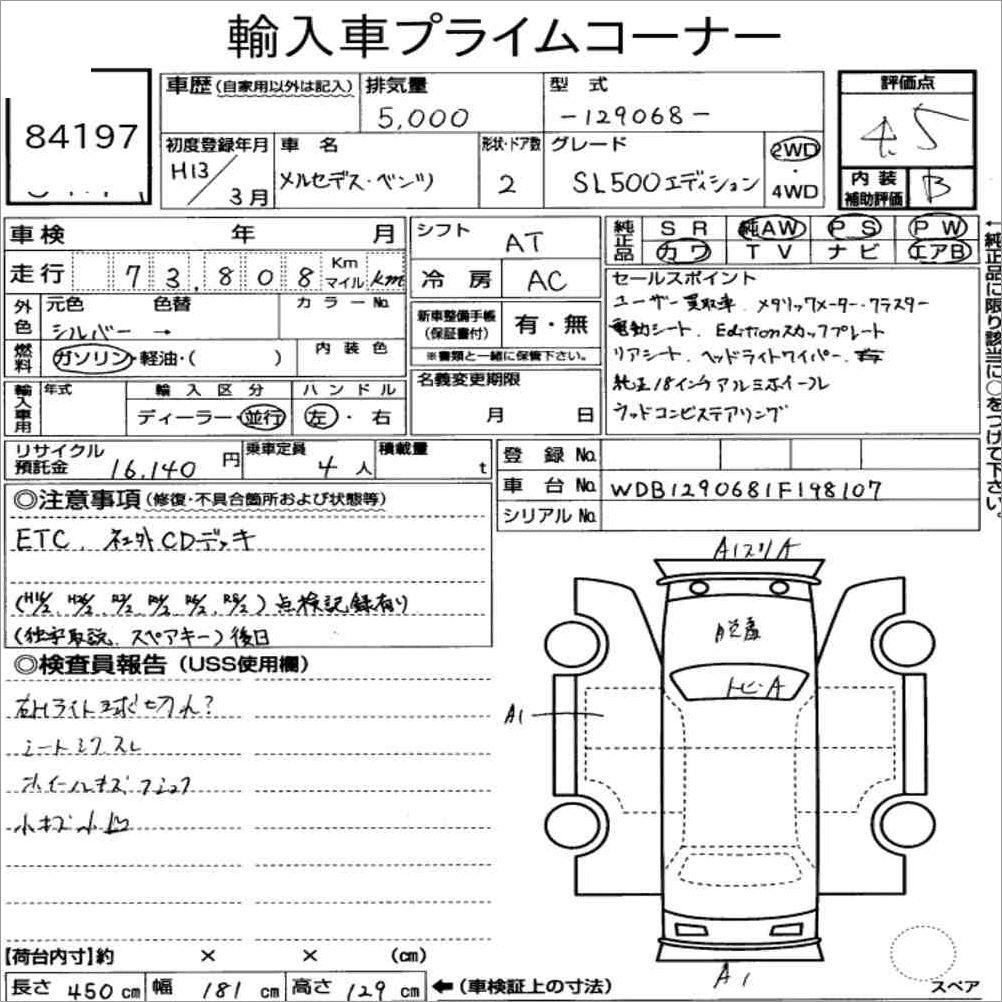 輸入車プライムコーナー
84197
車歴 (自家用以外は記入) 排気量 型式 評価点
5,000 -129068- 4.5
初度登録年月 車名 形状・ドア数 グレード 2WD・4WD
H13/3月 メルセデス・ベンツ 2 SL500エディション
内装補助評価 B
車検 年 月 シフト AT 純正品 SR 純AW PS PW
カワ TV ナビ エアB
走行 73,808 Km マイル km 冷房 AC
←純正品に限り該当に○をつけて下さい。
セールスポイント
ユーザー買取車. メタリックメーター・クラスター
電動シート. Editionスカッフプレート
リアシート. ヘッドライトワイパー.
純正18インチアルミホイール
ウッドコンビステアリング
外色 元色 色替 カラーNo.
シルバー →
新車整備手帳(保証書付) 有・無
※書類と一緒に保管下さい。
燃料 ガソリン・軽油・( ) 内装色
名義変更期限
月 日
輸入車用 年式 輸入区分 ハンドル
ディーラー・並行 左・右
リサイクル預託金 16,140円 乗車定員 4人 積載量 t
登録No.
車台No. WDB1290681F198107
シリアルNo.
◎注意事項 (修復・不具合箇所および状態等)
ETC. 社外CDデッキ
点検記録有り
(独字取説. スペアキー) 後日
◎検査員報告 (USS使用欄)
右Hライト球切れ?
シートシワスレ
ホイールキズ フミコク
小キズ小凹
A1スリA
トビ-A
A1
A1
【荷台内寸】約 × × (cm)
長さ 450cm 幅 181cm 高さ 129cm ←(車検証上の寸法)
スペア